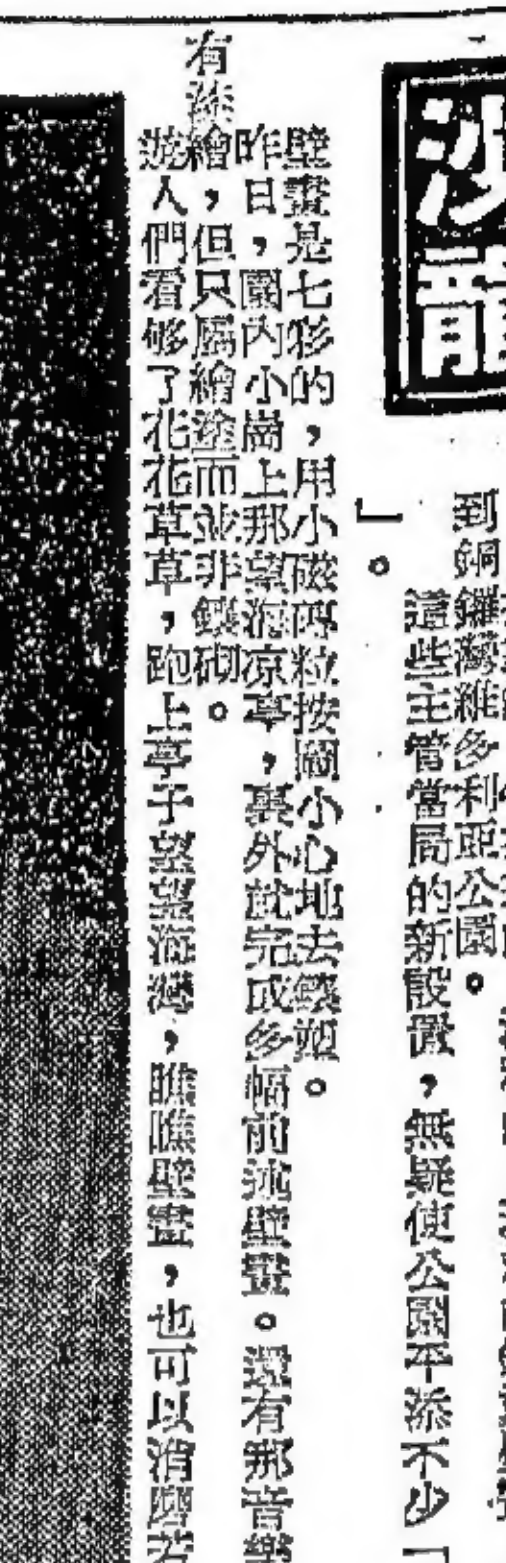 沙龍
到銅鑼灣維多利亞公園。
這些主管當局的新設置，無疑使公園平添不少「
」。
壁畫是七彩的，用小磁磚粒按圖小心地去鑲塑。
昨日，園內小崗上那望海凉亭，裏外就完成多幅前述壁畫。還有那音樂
有漆繪，但只屬繪塗而並非鑲砌。
遊人們看够了花花草草，跑上亭子望望海灣，瞧瞧壁畫，也可以消磨若